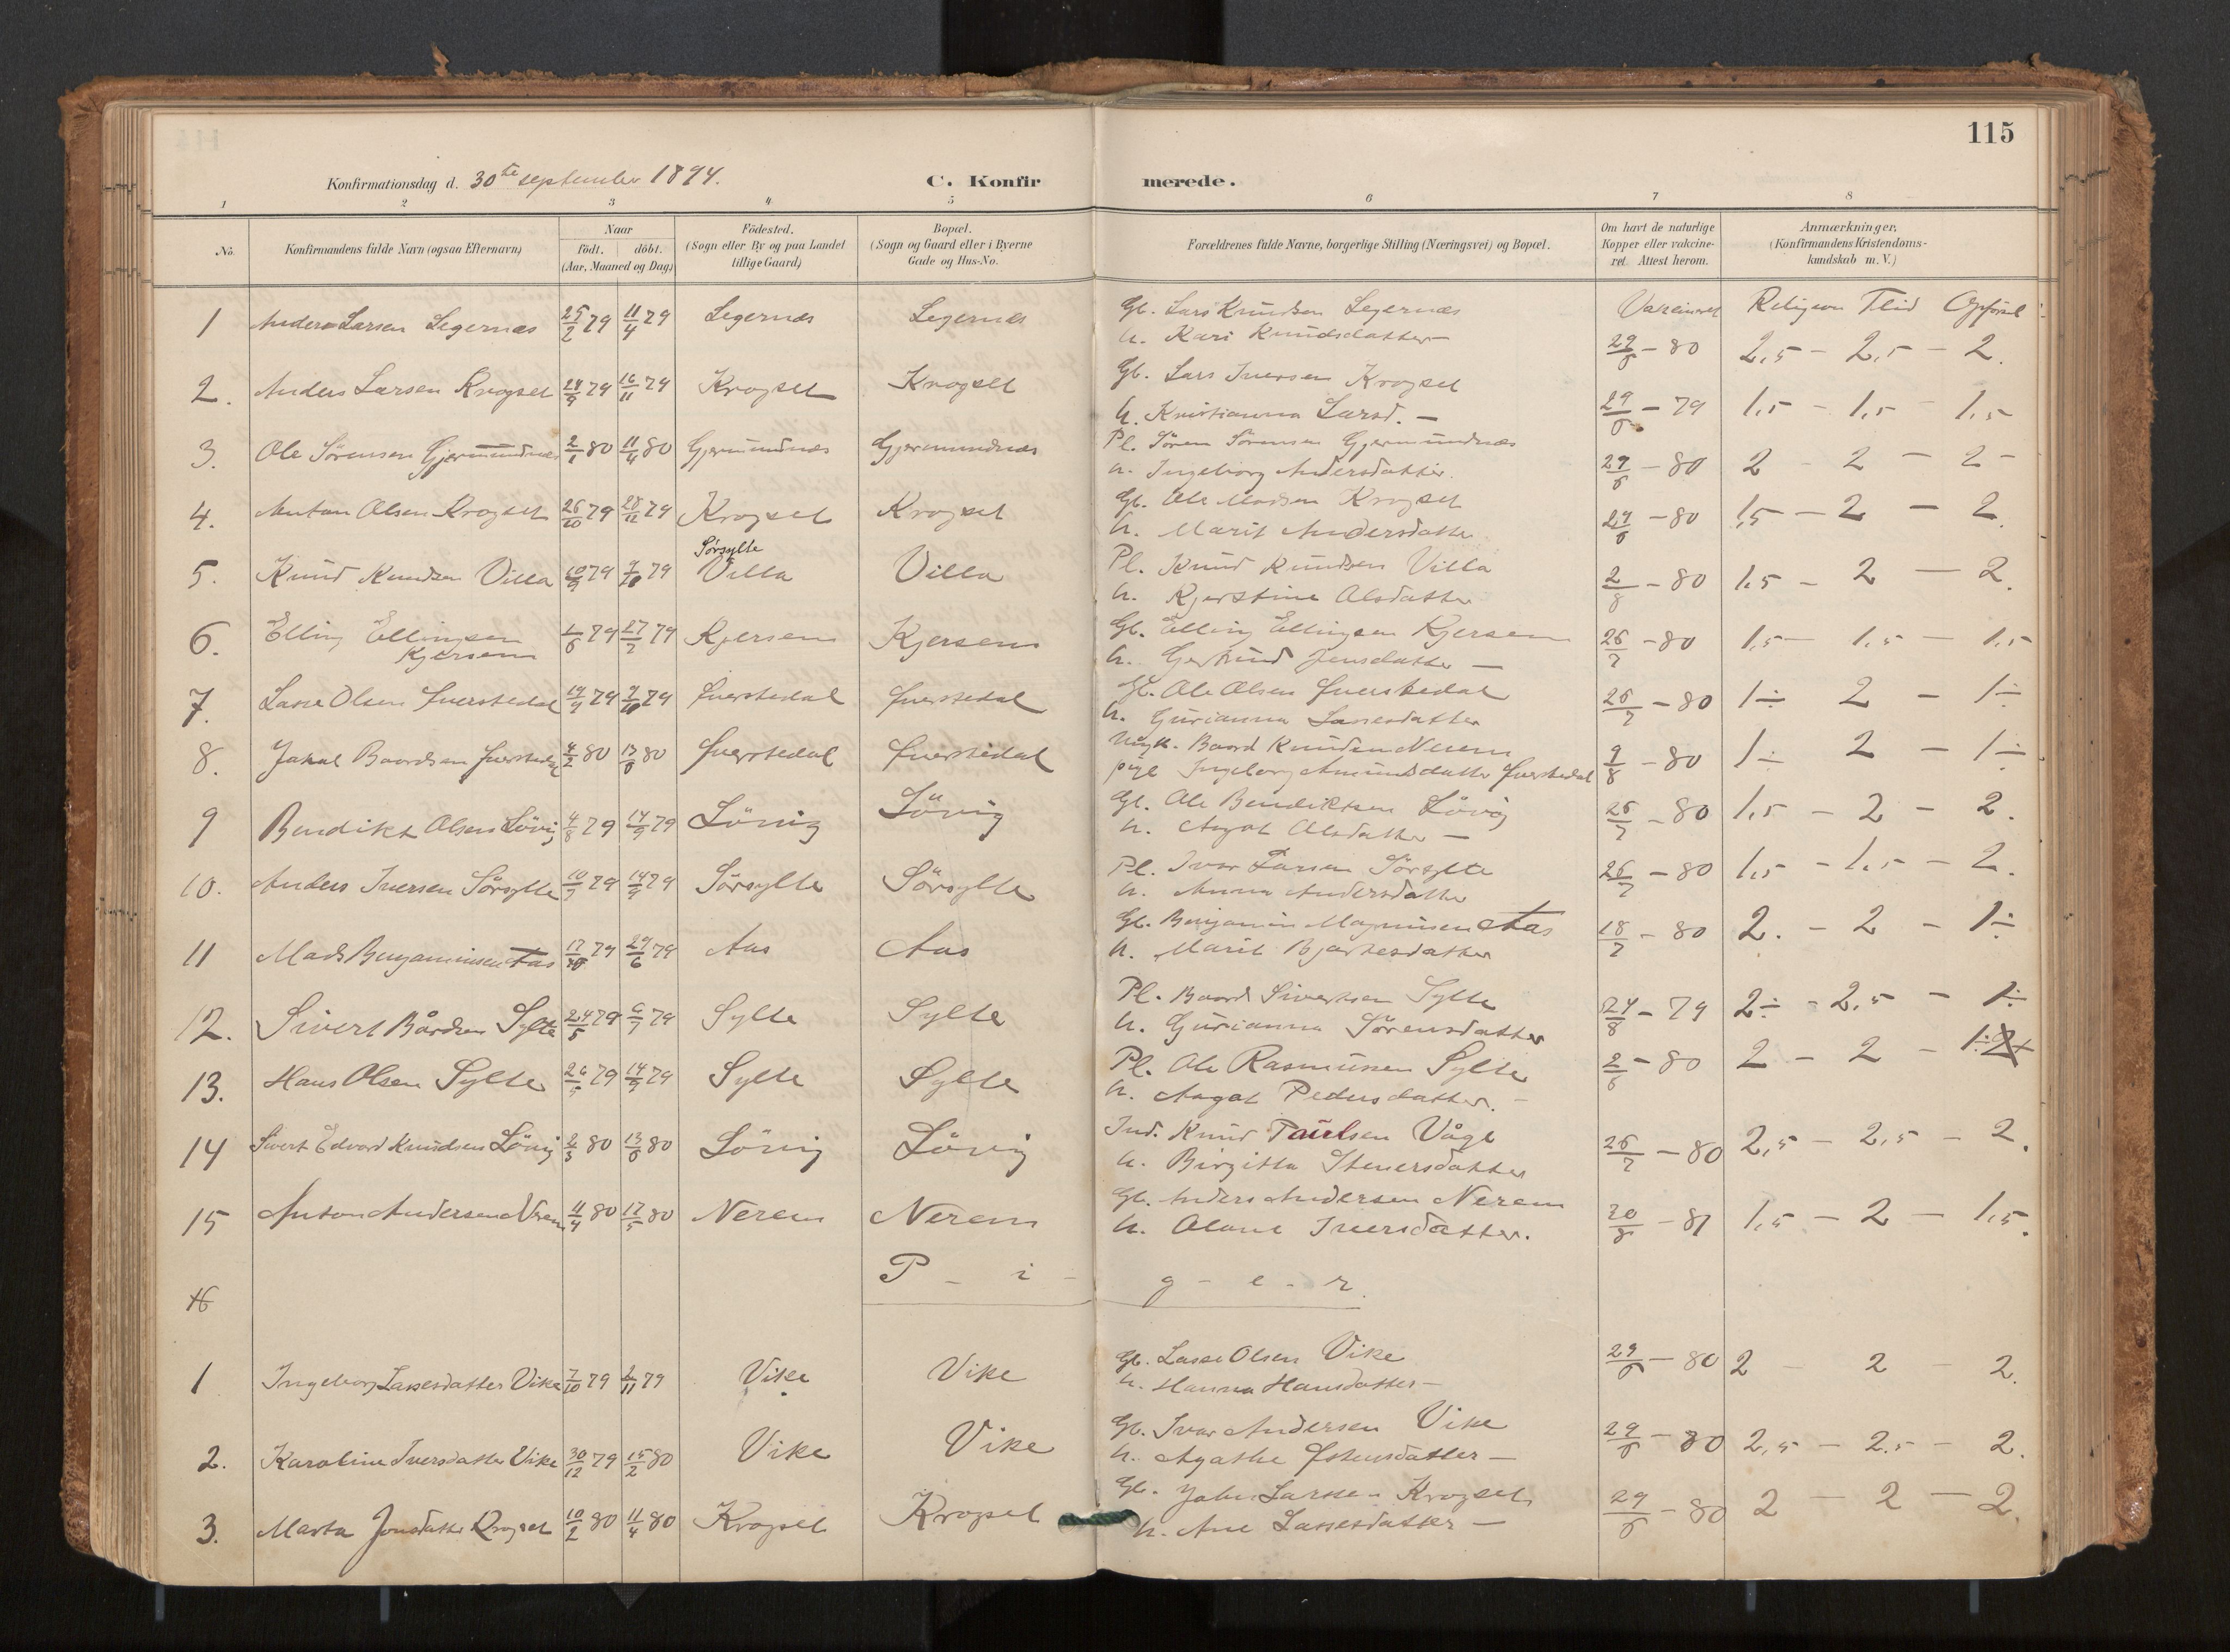 115
Konfirmationsdag d. 30te september 1894.
C. Konfirmerede.
1 2 3 4 5 6 7 8
No. Konfirmandens fulde Navn (ogsaa Efternavn) Naar født. døbt. (Aar, Maaned og Dag) Fødested. (Sogn eller By og paa Landet tillige Gaard) Bopæl. (Sogn og Gaard eller i Byerne Gade og Hus-No. Forældrenes fulde Navne, borgerlige Stilling (Næringsvei) og Bopæl. Om havt de naturlige Kopper eller vakcineret. Attest herom. Anmærkninger, (Konfirmandens Kristendomskundskab m. V.)
Vakcineret Religion Flid Opførsel
1 Anders Larsen Legernæs 25/2 79 11/4 79 Legernæs Legernæs Gb. Lars Knudsen Legernæs
h. Kari Knudsdatter — 29/6 - 80 2,5 - 2,5 - 2.
2. Anders Larsen Krogset 24/9 79 16/11 79 Krogset Krogset Gb. Lars Iversen Krogset
h. Kristianna Larsd. — 29/6 - 79 1,5 - 1,5 - 1,5
3. Ole Sörensen Gjermundnæs 2/1 80 11/4 80 Gjermundnæs Gjermundnæs Pl. Sören Sörensen Gjermundnæs
h. Ingeborg Andersdatter. 29/6 - 80 2 - 2 - 2 -
4. Anton Olsen Krogset 26/10 79 28/12 79 Krogset Krogset Gb. Ole Madsen Krogset
h. Marit Andersdatter 29/6 - 80 1,5 - 2 - 2.
Sörsylte
5. Knud Knudsen Villa 10/9 79 9/10 79 Villa Villa Pl. Knud Knudsen Villa
h. Kjerstine Olsdatter 2/8 - 80 1,5 - 2 - 2.
6. Elling Ellingsen
Kjersem 1/6 79 27/7 79 Kjersem Kjersem Gb. Elling Ellingsen Kjersem
h. Gertrud Jensdatter — 26/7 - 80 1,5 - 1,5 - 1,5
7. Lasse Olsen Fuerstedal 19/9 79 9/10 79 Fuerstedal Fuerstedal Gb. Ole Olsen Fuerstedal
h. Gurianna Lassesdatter 26/7 - 80 1÷ 2 - 1÷
8. Baardsen Fuerstedal 4/2 80 13/6 80 Fuerstedal Fuerstedal Ungk. Baard Knudsen Nerem
pige Ingeborg Amundsdatter Fuerstedal 9/8 - 80 1÷ 2 - 1÷
9 Bendikt Olsen Lövig 4/8 79 14/9 79 Lövig Lövig Gb. Ole Bendiktsen Lövig
h. Olsdatter — 26/7 - 80 1,5 - 2 - 2.
10. Anders Iversen Sörsylte 10/7 79 14/9 79 Sörsylte Sörsylte Pl. Ivar Larsen Sörsylte
h. Anna Andersdatter 26/7 - 80 1,5 - 1,5 - 2.
11 Mads Benjaminsen Aas 79 29/6 79 Aas Aas Gb. Benjamin Magnusen Aas
h. Marit Bjartesdatter 18/7 - 80 2. - 2 - 1÷
12. Sivert Bårdsen Sylte 24/5 79 6/7 79 Sylte Sylte Pl. Baard Sivertsen Sylte
h. Gurianna Sörensdatter 24/8 - 79 2÷ - 2,5 - 1÷
13. Hans Olsen Sylte 79 14/9 79 Sylte Sylte Pl. Ole Rasmusen Sylte
h. Aagot Pedersdatter. - 2/6 - 80 2 - 2 - 1÷
14 Sivert Edvard Knudsen Lövig 2/3 80 13/6 80 Lövig Lövig Ind. Knud Paulsen Våge
h. Birgitta Stenersdatter 26/7 - 80 2,5 - 2,5 - 2.
15 Anton Andersen Nerem 11/4 80 17/5 80 Nerem Nerem Gb. Anders Andersen Nerem
h. Olave Iversdatter. 20/8 - 81 1,5 - 2 - 1,5.
16
P - i - g - e - r.
1 Ingeborg Lassesdatter Vike 7/10 79 2/11 79 Vike Vike Gb. Lasse Olsen Vike
h. Hanna Hansdatter — 29/6 - 80 2 - 2 - 2.
2. Karoline Iversdatter Vike 30/12 79 15/2 80 Vike Vike Gb. Ivar Andersen Vike
h. Agathe Östensdatter — 29/6 - 80 2,5 - 2,5 - 2.
3. Marta Jonsdatter Krogset 10/2 80 11/4 80 Krogset Krogset Gb. John Larsen Krogset
h. Ane Lassesdatter — 29/6 - 80 2 - 2 - 2.